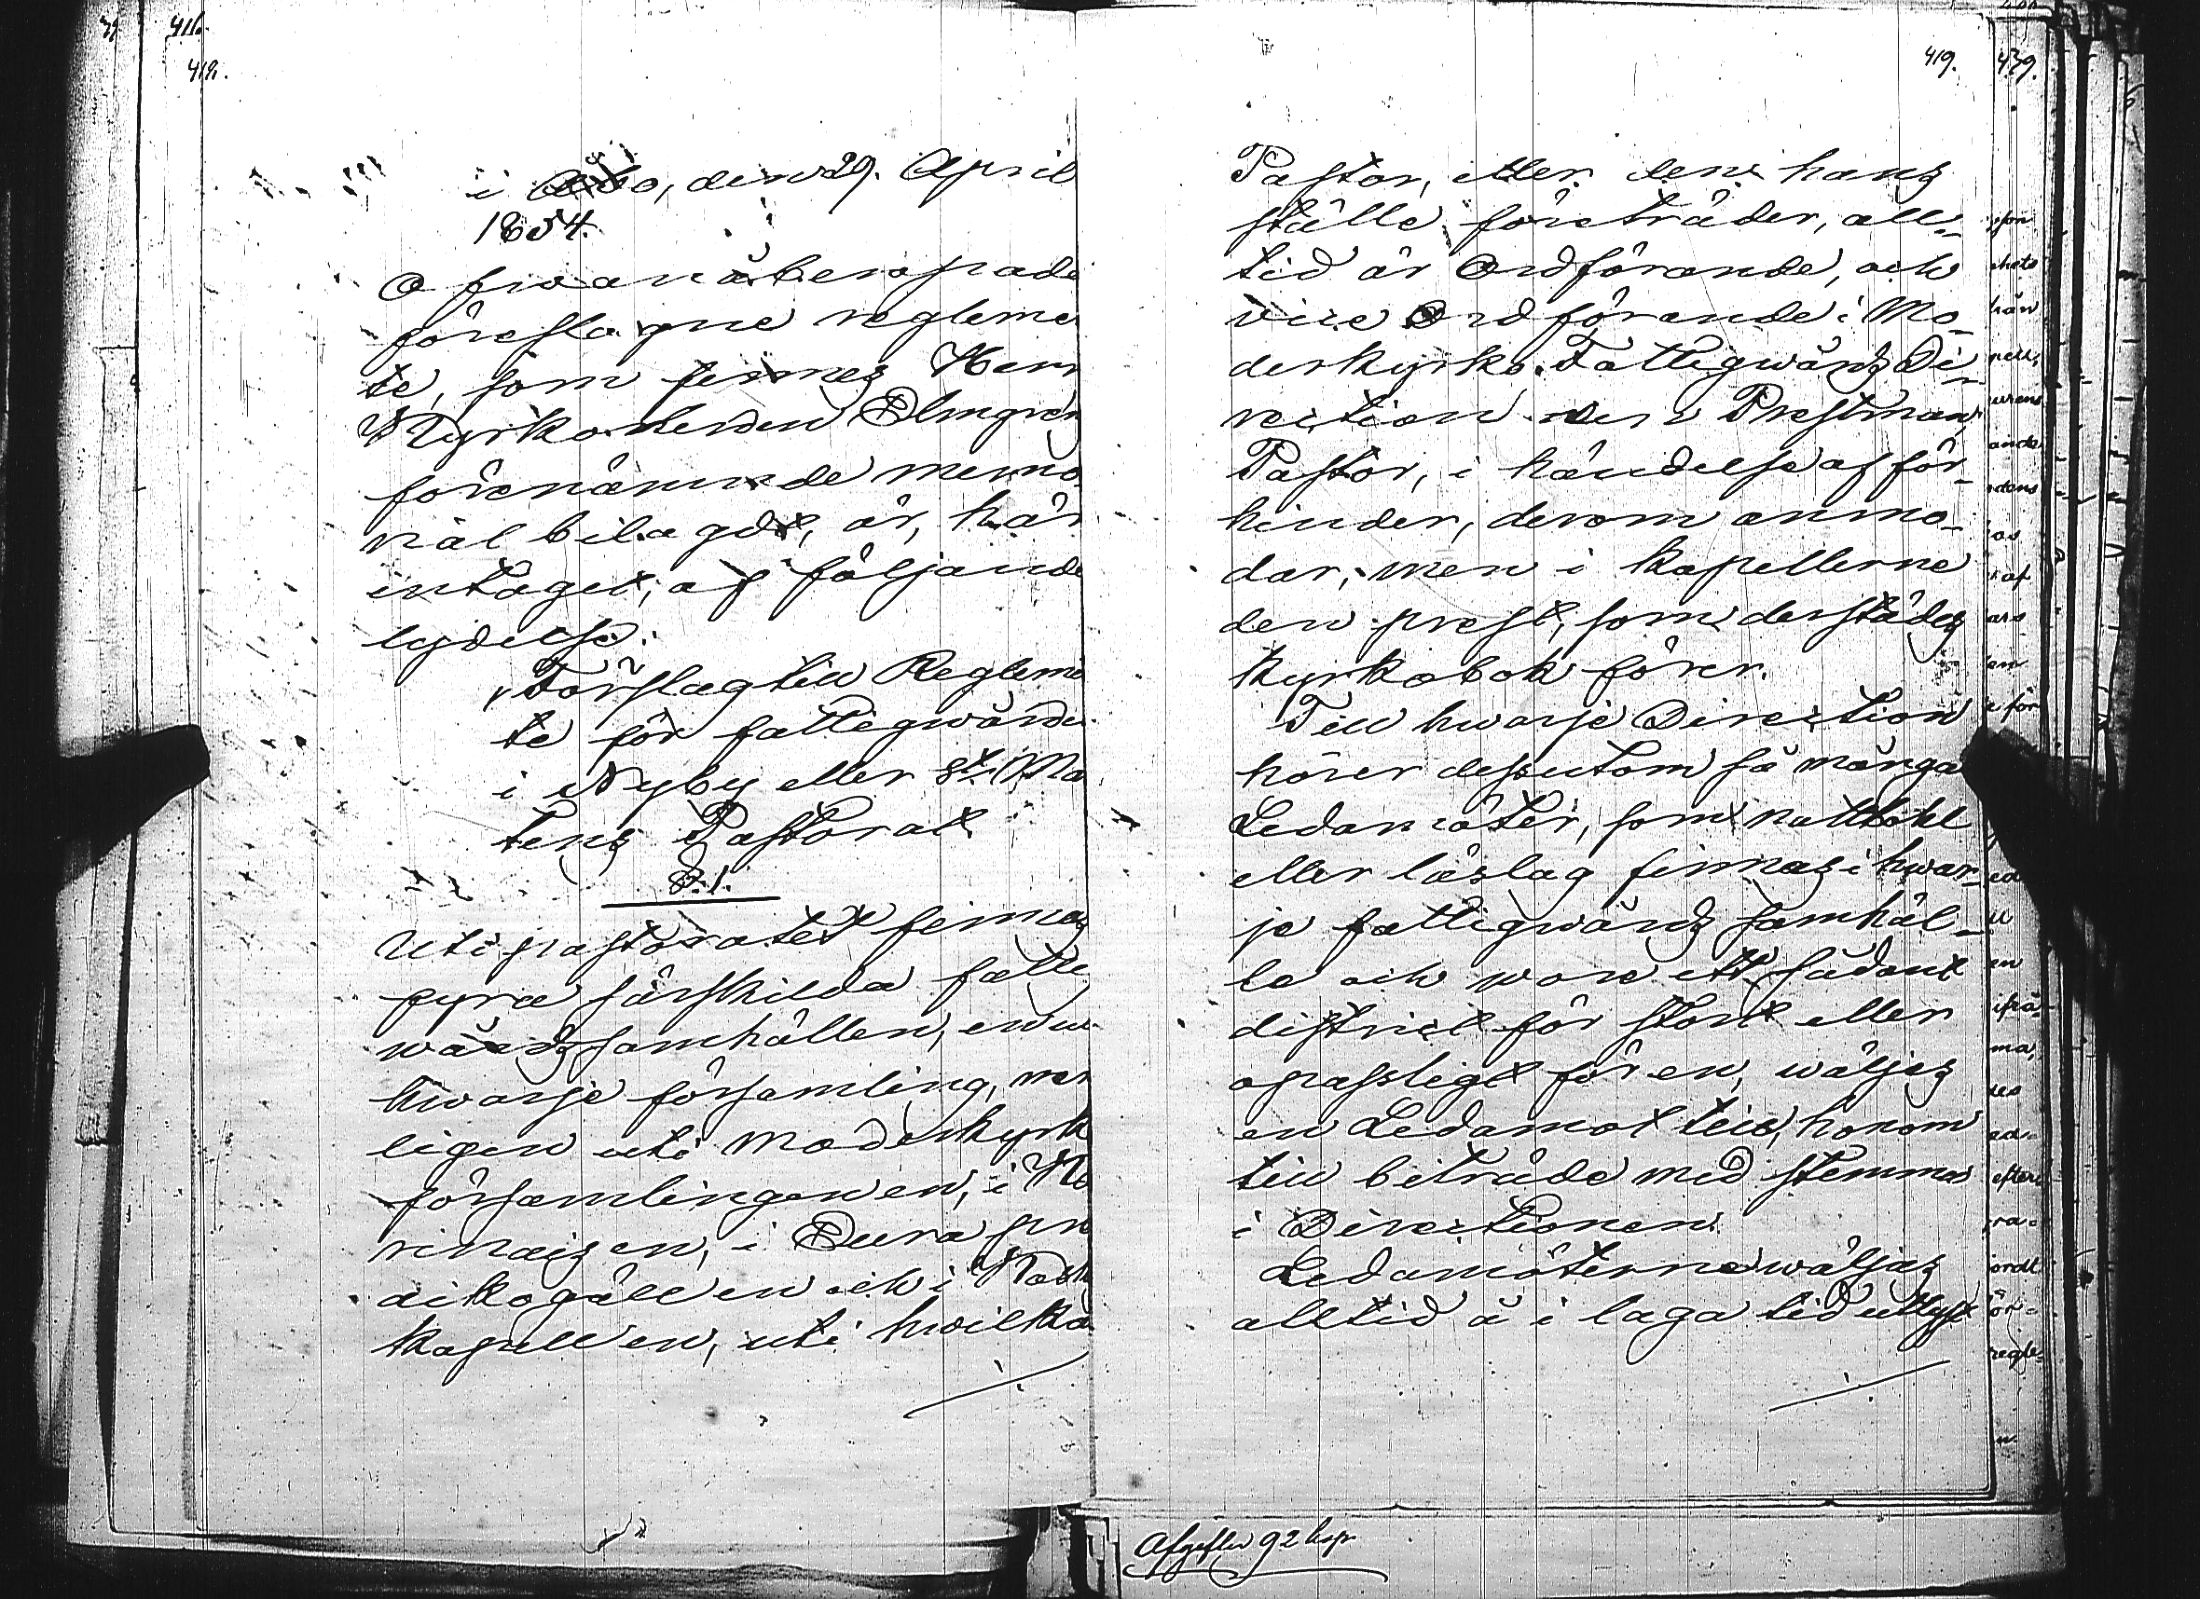 416.
418.
i Åbo, den 29. April
1854.
Ofwanåberopade
föreslagne regleme
te, som finnes Herr
Kyrkoherden Elmgren
förenämnde memo
rial bilagdt, är, här
intaget, af följande
lydelse:
"Förslag till Regleme
te för fattigwården
i Nyby eller St. Mår
tens Pastorat
§.1.
Uti pastoratet finnas
fyra särskilda fatti
wårds samhällen, en u
hwarje församling, nem
ligen uti moderkyrk
församlingen en, i Ka
rinais en, i Eura pre
dikogäll en och i Koski
kapell en, uti hwilka
419.
439.
Pastor, eller den hans
ställe företräder, all-
tid är Ordförande, och
vice Ordförande i Mo-
derkyrko Fattigwårds Di-
rection den Prestman,
Pastor, i händelse af för-
hinder, derom anmo-
dar, men i kapellerne
den prest, som derstädes
kyrkobok förer.
Till hwarje Direction
hörer dessutom så många
Ledamöter, som rotthål
eller läslag finnas i hwar-
je fattigwårds samhäl-
le och wore ett sådant
district för stort eller
opassligt för en, wäljes
en Ledamot till, honom
till biträde med stemma
i Directionen.
Ledamöterne wäljas
alltid å i laga tid utlyst
Afgiften 92 kop